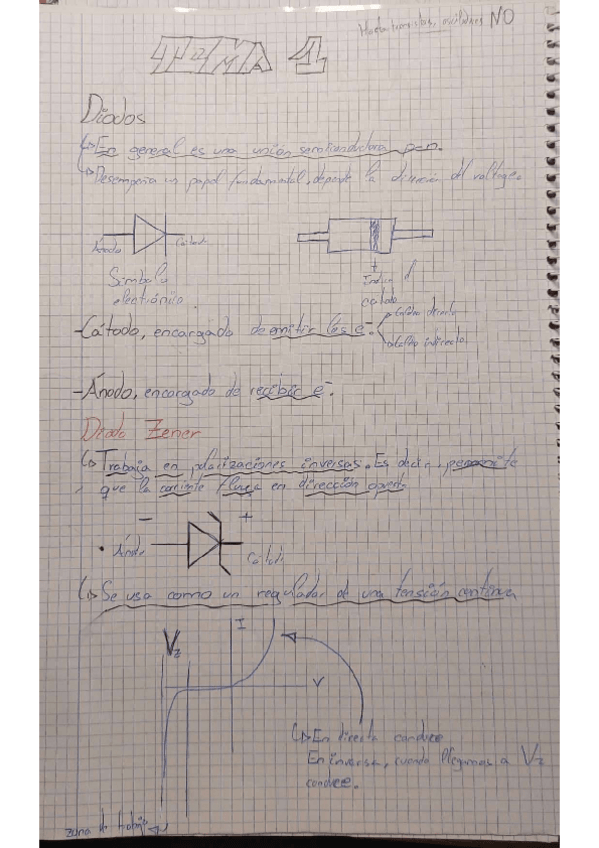 Hasta transistores, osciladores NO
TEMA 1
Diodos
En general es una unión semiconductora p-n.
Desempeña un papel fundamental, depende la dirección del voltage.
Ánodo
Cátodo
Símbolo
electrónico.
Indica el
cátodo
-Cátodo, encargado de emitir los e⁻.
cátodo directo
cátodo indirecto
-Ánodo, encargado de recibir e⁻.
Diodo Zener
Trabaja en polarizaciones inversas. Es decir, permite
que la corriente fluya en dirección
- +
Ánodo
Cátodo
Se usa como un regulador de una tensión continua
I
Vz
V
En directa conduce
En inversa, cuando llegamos a Vz
conduce.
zona de trabajo